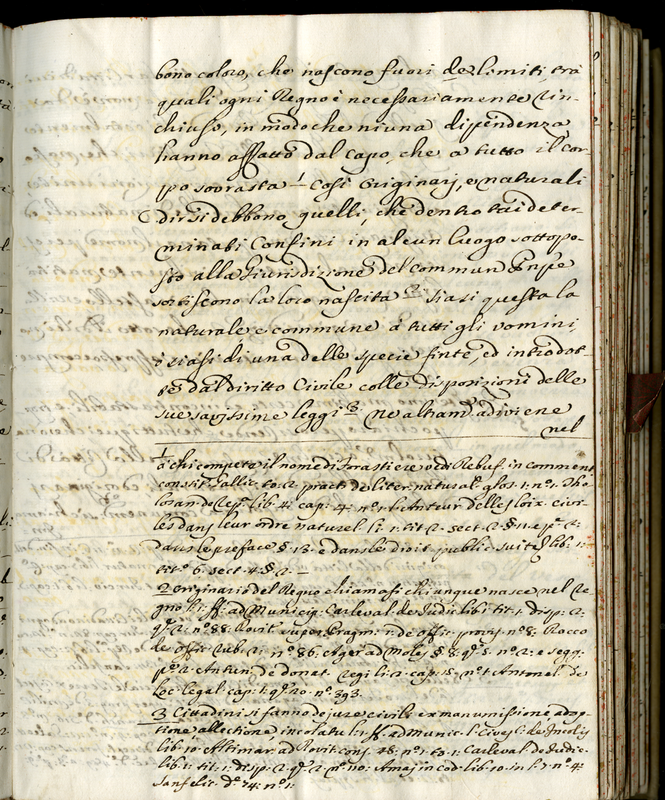 bono coloro, che nascono fuori de limiti, trà
quali ogni Regno è necessariamente rin-
chiuso, in modo che niuna dipendenza
hanno affatto dal capo, che a tutto il cor-
po sovrasta 1 Cosi Originarj, e naturali
dirsi debbono quelli, che dentro tai deter-
minati Confini in alcun luogo sottopo-
sto alla Giurisdizione del commun Enpe
sortiscono la loro nascita 2 Siasi questa la
naturale e commune à tutti gli uomini,
ò siasi di una delle specie finte, ed introdot-
te dal diritto Civile colle disposizioni delle
sue savissime leggi 3. Ne altram.te adiviene
nel
1 a chi competa il nome di Forastiero vedi Rebuf. in comment
consit. Gallic. to. 2. pract. de liter. natural. glos. 1. n.o 1. Tho-
losan. de Rep. lib. 4. cap. 4. n.o 1. L'Auteur delles loix civi-
les dans leur ordre naturel. li. 1. tit. 2. sect. 2. § 11. e p.o 2.
dans le preface § 13. e dans le droit public suite lib. 1.
tit.o 6. sect. 4. § 2. —
2 originario del Regno chiamasi chiunque nasce nel Re-
gno l. 1. ff. ad Municip. Carleval de Judic. lib. 1. tit. 1. disp. 2.
q. 2. n.o 88. Rovit. super Pragm. 1. de offic. proc. n.o 8. Rocco
de offic. rub. 2. n.o 86. Ager ad Moles § 8. q. 5. n.o 2. e segg.
de donat. Regi li. 2. cap. 15. n.o 1. Antonel. de
Loc. legal. cap. 1. q. 20. n.o 393.
3 Cittadini si fanno de jure civili ex manumissione, adop-
tione allectione, incolatu l. 1. ff. ad Munic. l. Cives C. de Incolis
lib. 10. Altimar. ad Rovit. cons. 48. n.o 1. 63. 1. Carleval de Judic.
lib. 1. tit. 1. disp. 2. q. 2. n.o 110. Amaj in cod. lib. 10. in l. 7. n.o 4.
Sanfelic. d. 74. n.o 1.